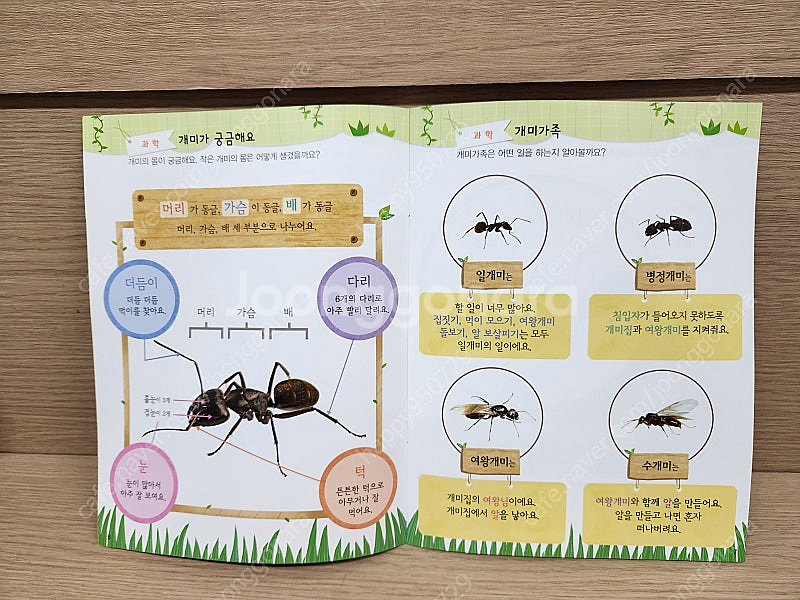 과학
개미가 궁금해요
개미의 몸이 궁금해요. 작은 개미의 몸은 어떻게 생겼을까요?
머리가 동글, 가슴이 동글, 배가 동글
머리, 가슴, 배 세 부분으로 나누어요.
더듬이
더듬 더듬
먹이를 찾아요.
다리
6개의 다리로
아주 빨리 달려요.
머리 가슴 배
홑눈이 3개
겹눈이 2개
눈
눈이 많아서
아주 잘 보여요.
턱
튼튼한 턱으로
아무거나 잘
먹어요.
과학
개미가족
개미가족은 어떤 일을 하는지 알아볼까요?
일개미는
할 일이 너무 많아요.
집짓기, 먹이 모으기, 여왕개미
돌보기, 알 보살피기는 모두
일개미의 일이에요.
병정개미는
침입자가 들어오지 못하도록
개미집과 여왕개미를 지켜줘요.
여왕개미는
개미집의 여왕님이에요.
개미집에서 알을 낳아요.
수개미는
여왕개미와 함께 알을 만들어요.
알을 만들고 나면 혼자
떠나버려요.
Joonggonara